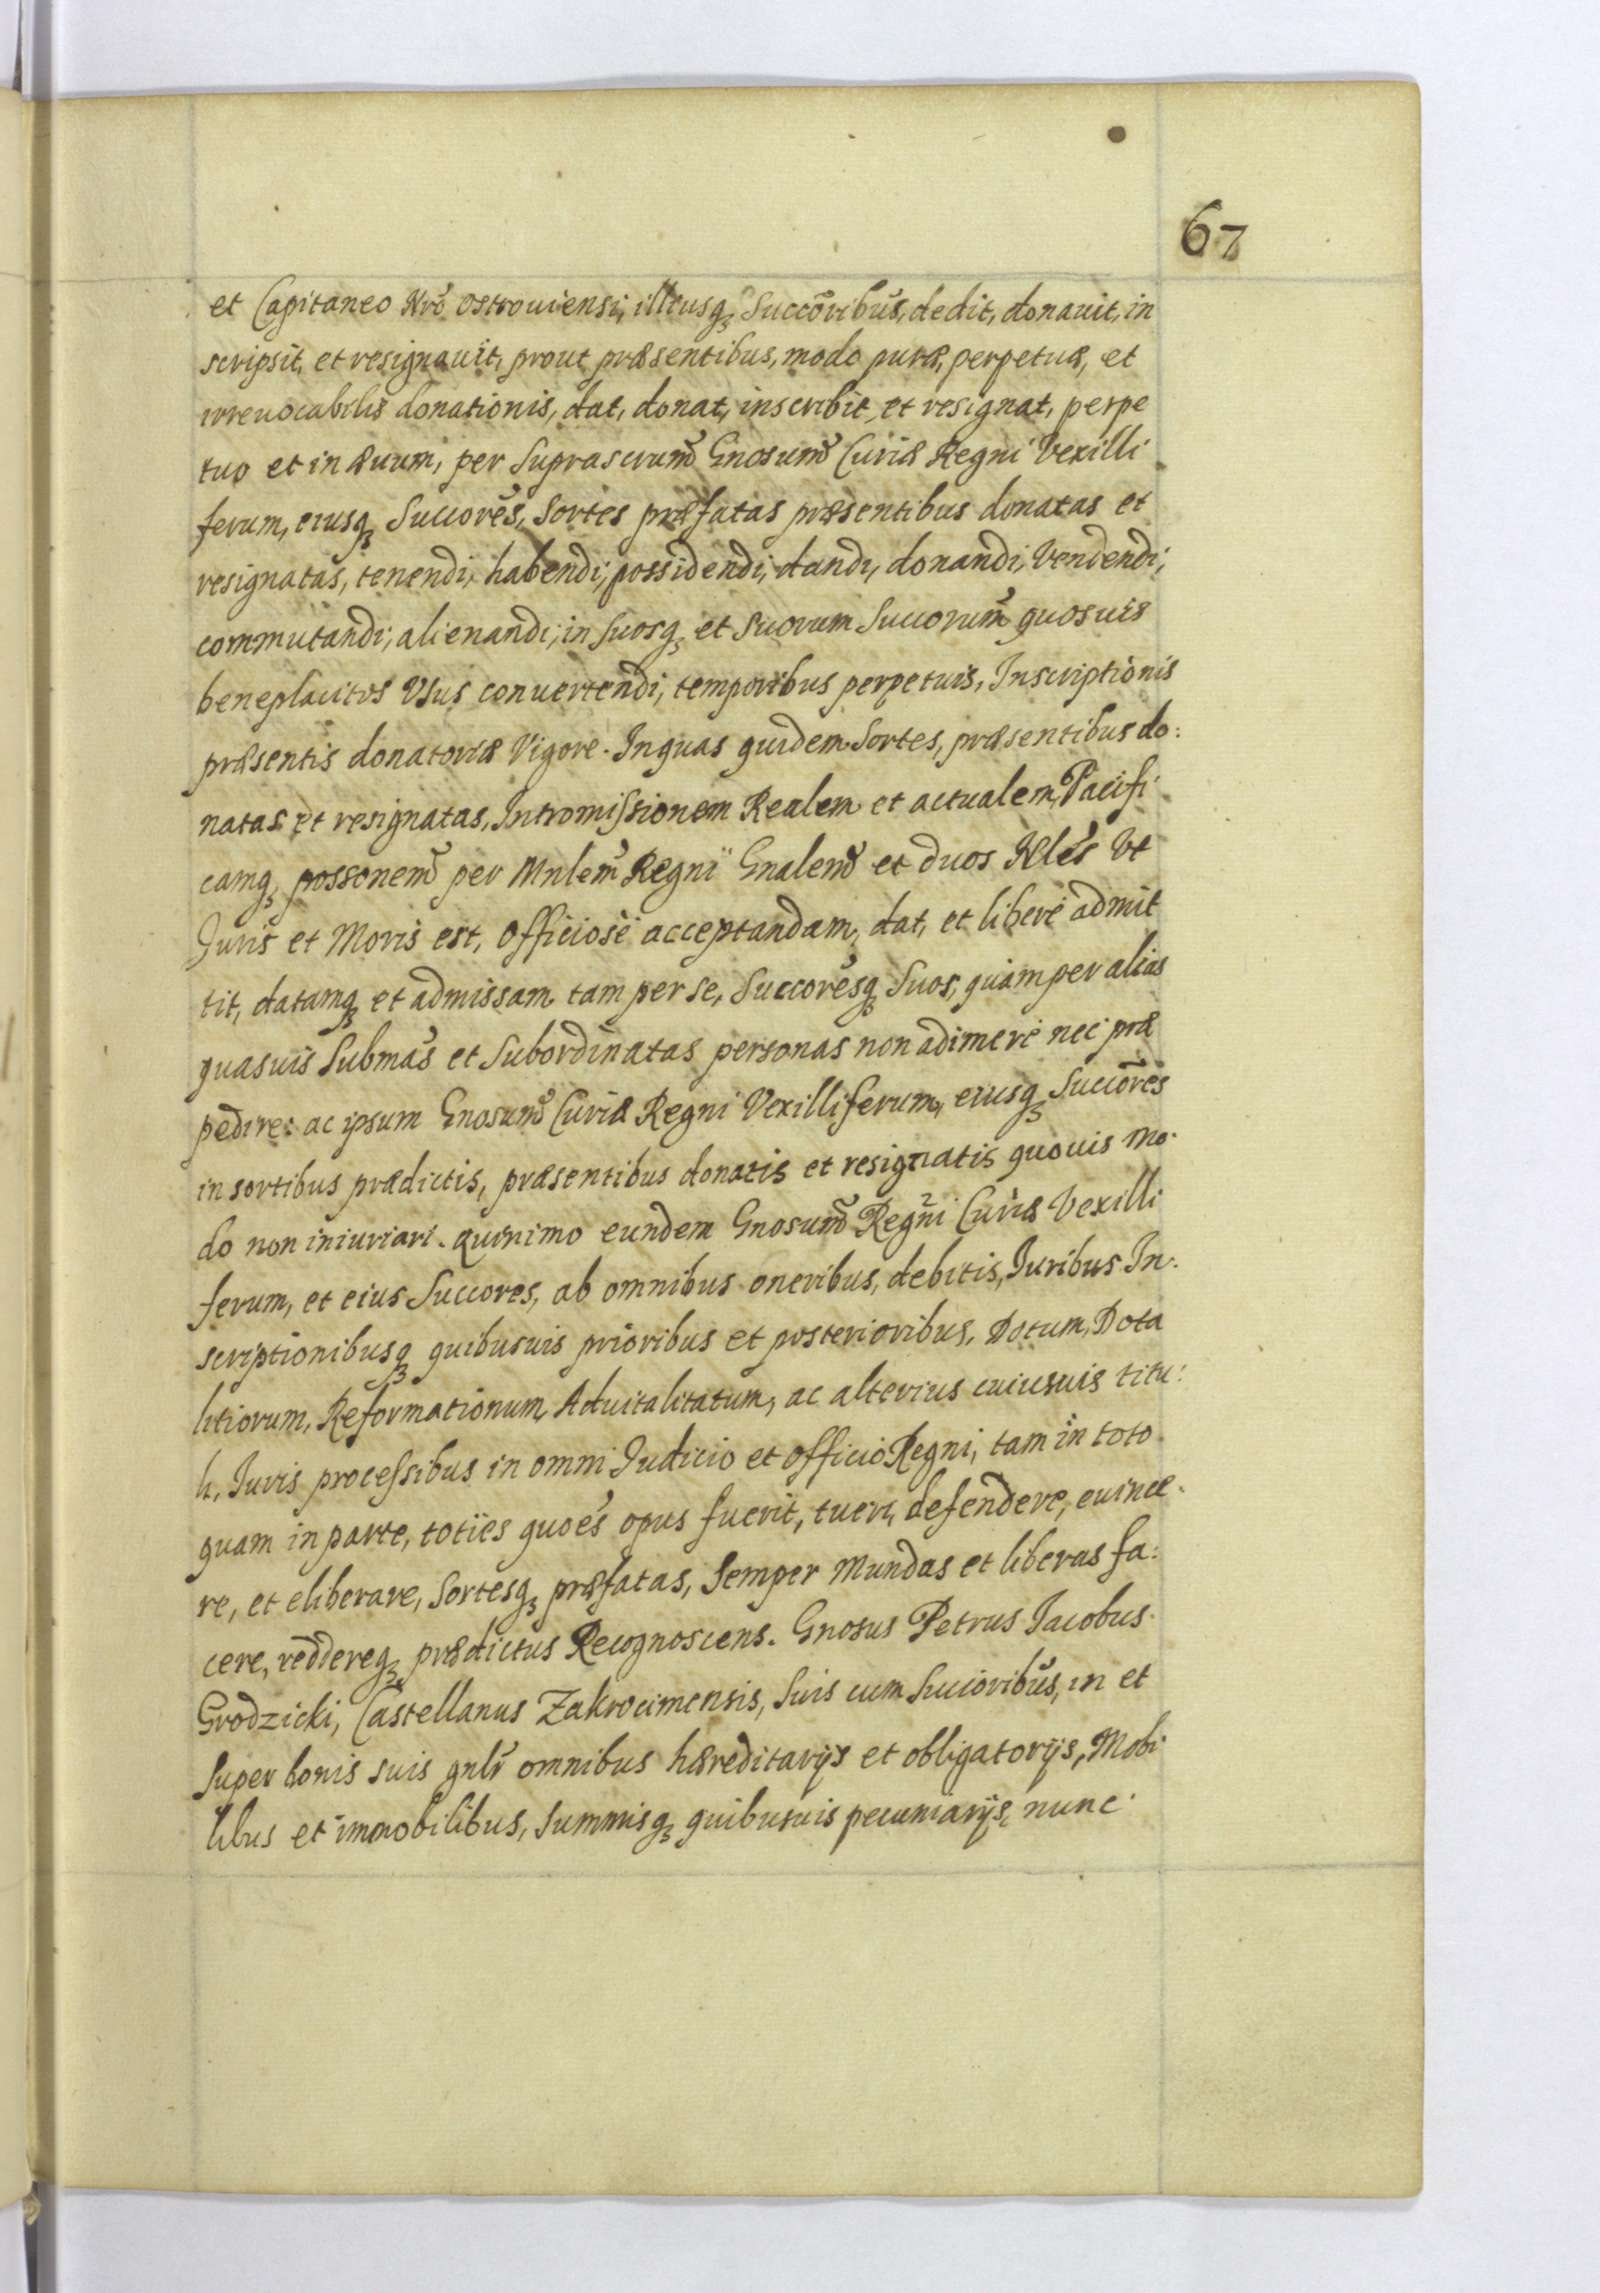 67
et Capitaneo Nrõ Ostrouiensi, illiusq₃ Succõribus, dedit, donauit, in
scripsit, et resignauit, prout præsentibus, modo puræ, perpetuæ, et
irreuocabilis donationis, dat, donat, inscribit, et resignat, perpe
tuo et in æuum, per suprascrum̃ Gnosum̃ Curiæ Regni Vexilli
ferum, eiusq₃ Succorẽs, Sortes præfatas præsentibus donatas et
resignatas, tenendi, habendi, possidendi, dandi, donandi, Vendendi,
commutandi, alienandi, in suosq₃ et suorum Succorum̃ quosuis
beneplacitos Vsus conuertendi, temporibus perpetuis, Inscriptionis
præsentis donatoriæ Vigore. In quas quidem Sortes, præsentibus do:
natas et resignatas, Intromissionem Realem et actualem, Pacifi
camq₃ possonem̃ per Mnlem̃ Regni Gnalem̃ et duos Nlẽs Vt
Juris et Moris est, officiosè acceptandam, dat, et liberè admit
tit, datamq₃ et admissam tam per se, Succorẽsq₃ suos, quàm per alias
quasuis Submãs et Subordinatas personas non adimere nec præ
pedire: ac ipsum Gnosum̃ Curiæ Regni Vexilliferum, eiusq₃ Succõres
in sortibus prædictis, præsentibus donatis et resignatis quouis mo
do non iniuriari. Quinimo eundem Gnosum̃ Regni Curiæ Vexilli
ferum, et eius Succores, ab omnibus oneribus, debitis, Juribus In
scriptionibusq₃ quibusuis prioribus et posterioribus, Dotum, Dota
litiorum, Reformationum, Aduitalitatum, ac alterius cuiusuis titu:
li, Juris processibus in omni Judicio et officio Regni, tam in toto
quam in parte, toties quoẽs opus fuerit, tueri, defendere, euince
re, et eliberare, Sortesq₃ præfatas, semper Mundas et liberas fa:
cere, reddereq₃ prædictus Recognoscens. Gnosus Petrus Jacobus
Grodzicki, Castellanus Zakrocimensis, suis cum Succoribus, in et
super bonis suis gnlr̃ omnibus hæreditarijs et obligatorijs, Mobi
libus et immobilibus, Summisq₃ quibusuis pecuniarijs, nunc